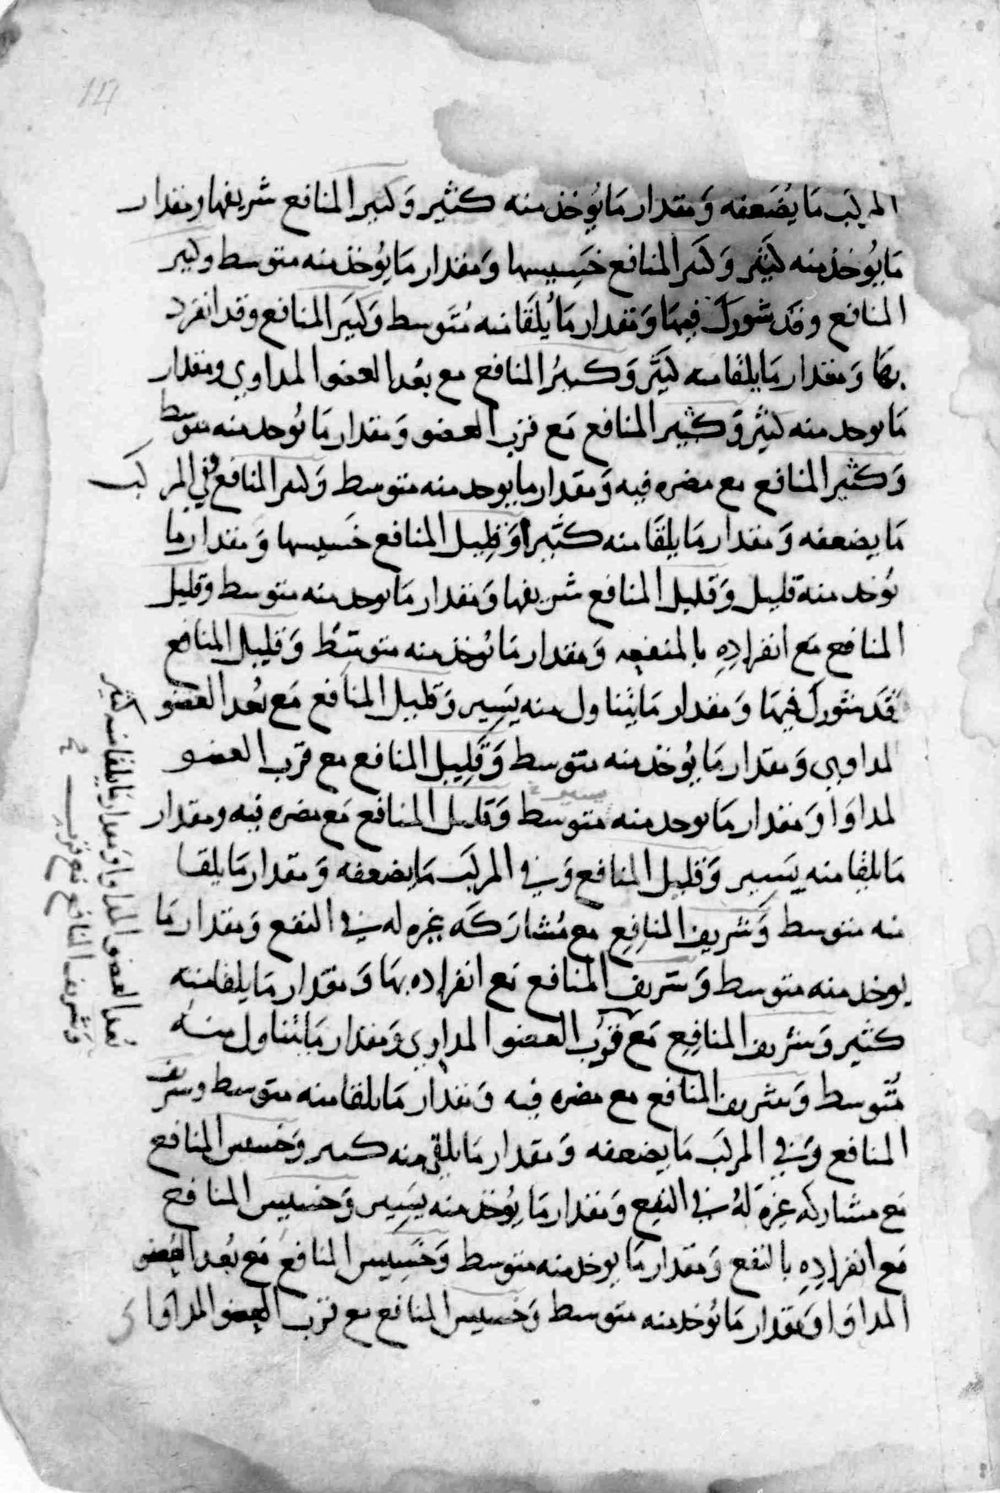 117
المركب ما يضعفه ومقدار ما يؤخذ منه كثير وكثير المنافع شريفها ومقدار
ما يؤخذ منه كثير وكثير المنافع خسيسها ومقدار ما يؤخذ منه متوسط وكثير
المنافع وقد شورك فيها ومقدار ما يلقا منه متوسط وكثير المنافع وقد انفرد
بها ومقدار ما يلقا منه كثير وكثير المنافع مع بعد العضو المداوي ومقدار
ما يوخد منه كثير وكثير المنافع مع قرب العضو ومقدار ما يوخد منه متوسط
وكثير المنافع مع مضره فيه ومقدار ما يوخد منه متوسط وكثير المنافع وفي المركب
ما يضعفه ومقدار ما يلقا منه كثيرا وقليل المنافع خسيسها ومقدار ما
يوخد منه قليل وقليل المنافع شريفها ومقدار ما يوخد منه متوسط وقليل
المنافع مع انفراده بالمنفعه ومقدار ما يوخذ منه متوسط وقليل المنافع
قد شورك فيها ومقدار ما يتناول منه يسير وقليل المنافع مع بعد العضو
المداوي ومقدار ما يؤخذ منه متوسط وقليل المنافع مع قرب العضو
يسير
المداوا ومقدار ما يوحد منه متوسط وقليل المنافع مع مضره فيه ومقدار
ما يلقا منه يسير وقليل المنافع وفي المركب ما يضعفه ومقدار ما يلقا
منه متوسط وشريف المنافع مع مشاركه غيره له في النفع ومقدار ما
يوخد منه متوسط وشريف المنافع مع انفراده بها ومقدار ما يلقا منه
كثير وشريف المنافع مع قرب العضو المداوي ومقدار ما يتناول منه
متوسط وشريف المنافع مع مضره فيه ومقدار ما يلقا منه متوسط وشريف
المنافع وفي المركب ما يضعفه ومقدار ما يلقى منه كثير وخسيس المنافع
مع مشاركه غيره له في النفع ومقدار ما يؤخذ منه يسير وخسيس المنافع
مع انفراده بالنفع ومقدار ما يوخد منه متوسط وخسيس المنافع مع بعد العضو
المداوا ومقدار ما يوخد منه متوسط وخسيس المنافع مع قرب العضو المداوا
بعد العضو المداوا ومقدار ما يلقا منه كثير
وشريف المنافع مع قرب